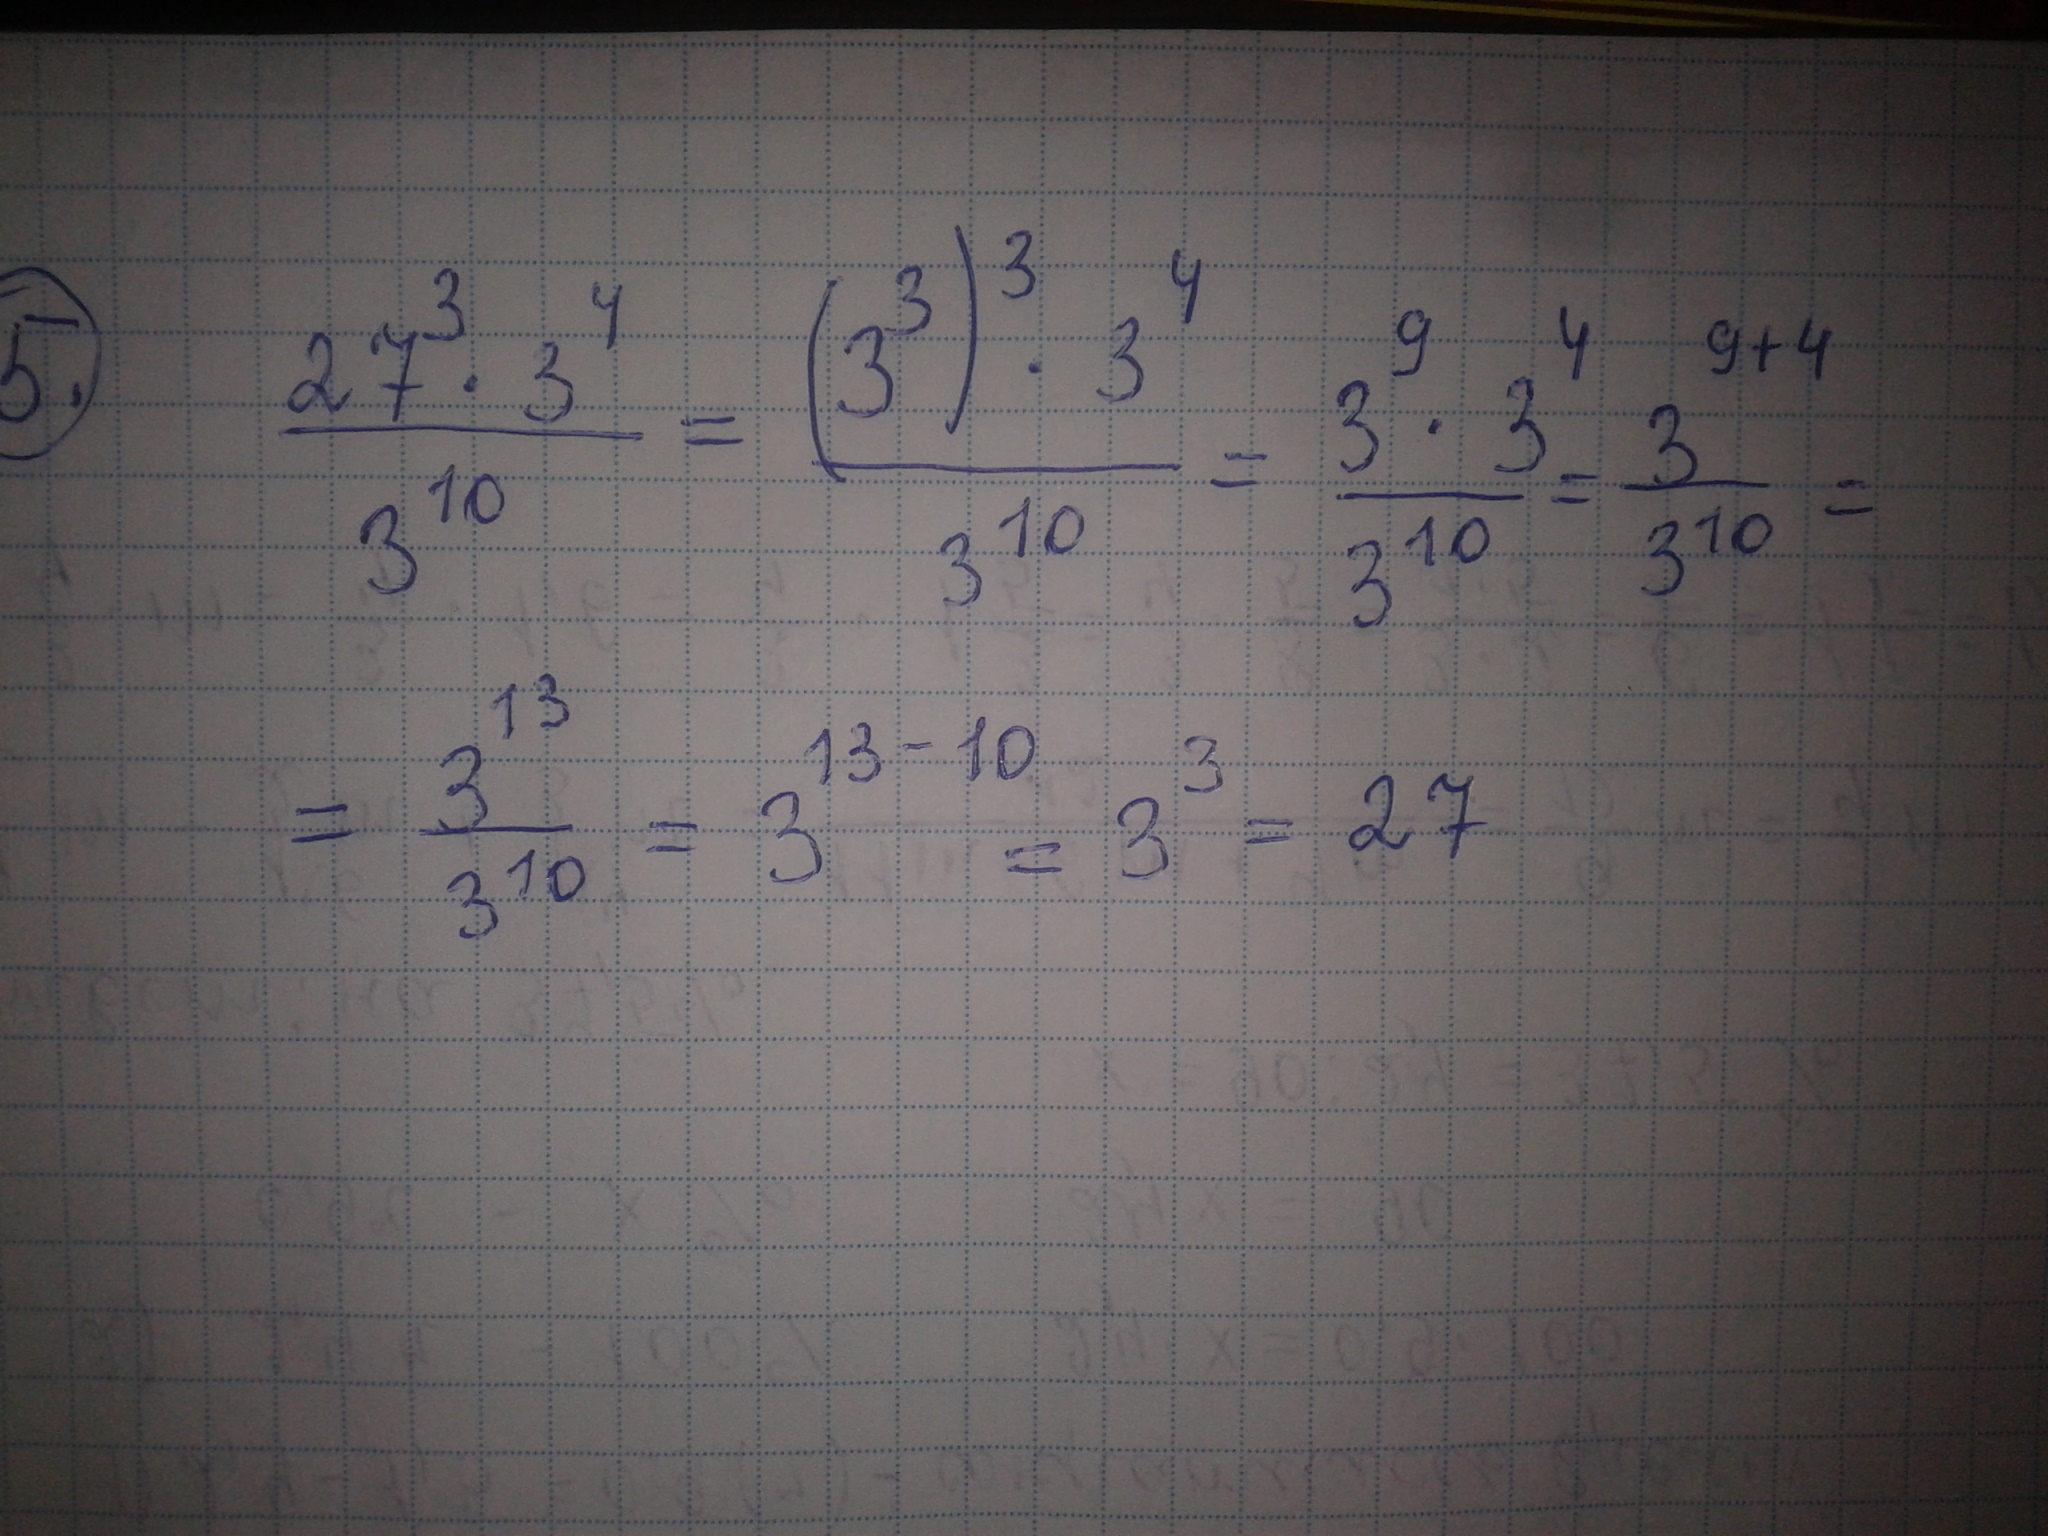 5. 27³ · 3⁴ / 3¹⁰ = (3³)³ · 3⁴ / 3¹⁰ = 3⁹ · 3⁴ / 3¹⁰ = 3⁹⁺⁴ / 3¹⁰ =
= 3¹³ / 3¹⁰ = 3¹³⁻¹⁰ = 3³ = 27